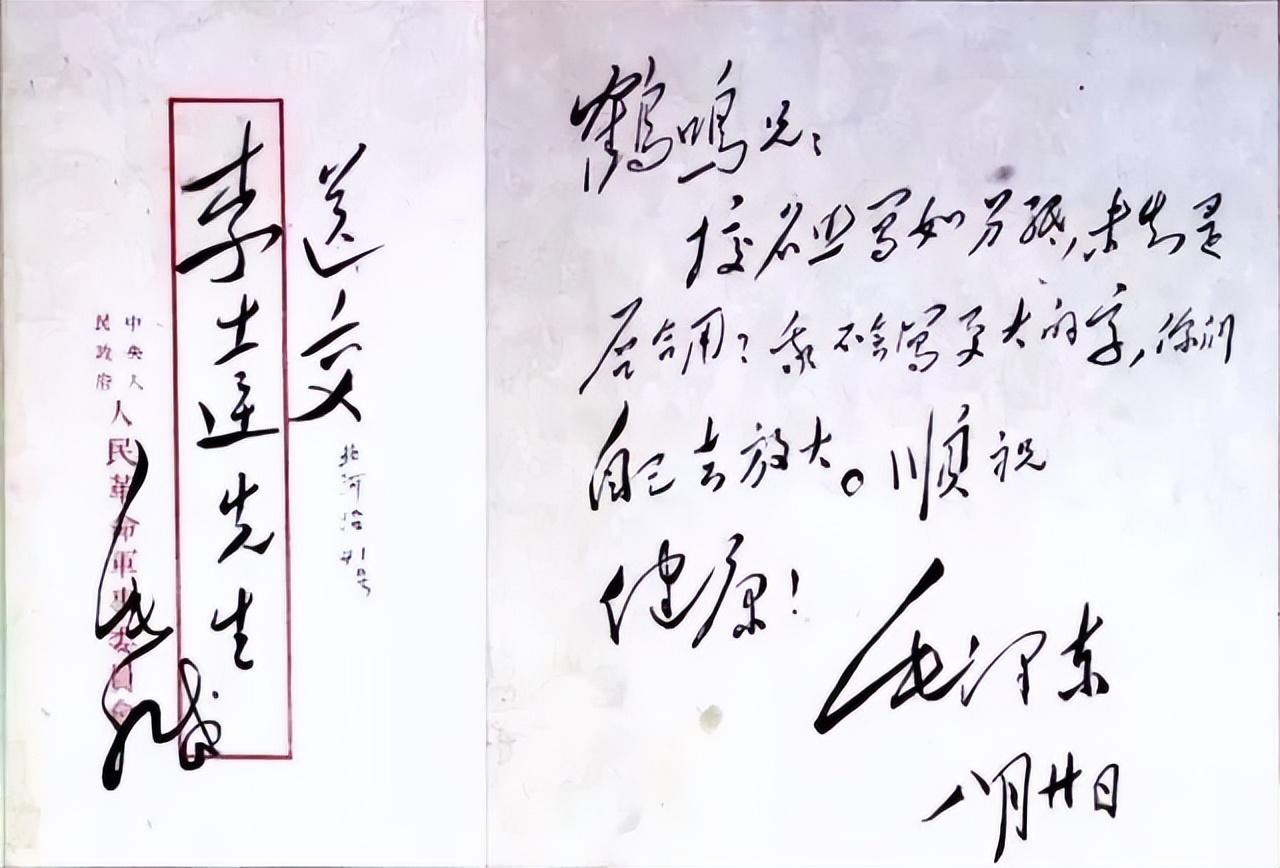 送交
李達先生
毛缄
北河沿
中央人
民政府
人民革命軍事委員會
鶴鳴兄：
校名业写如另紙，未知是
否合用？我不会写更大的字，你们
自己去放大。順祝
健康！
毛泽东
八月廿日